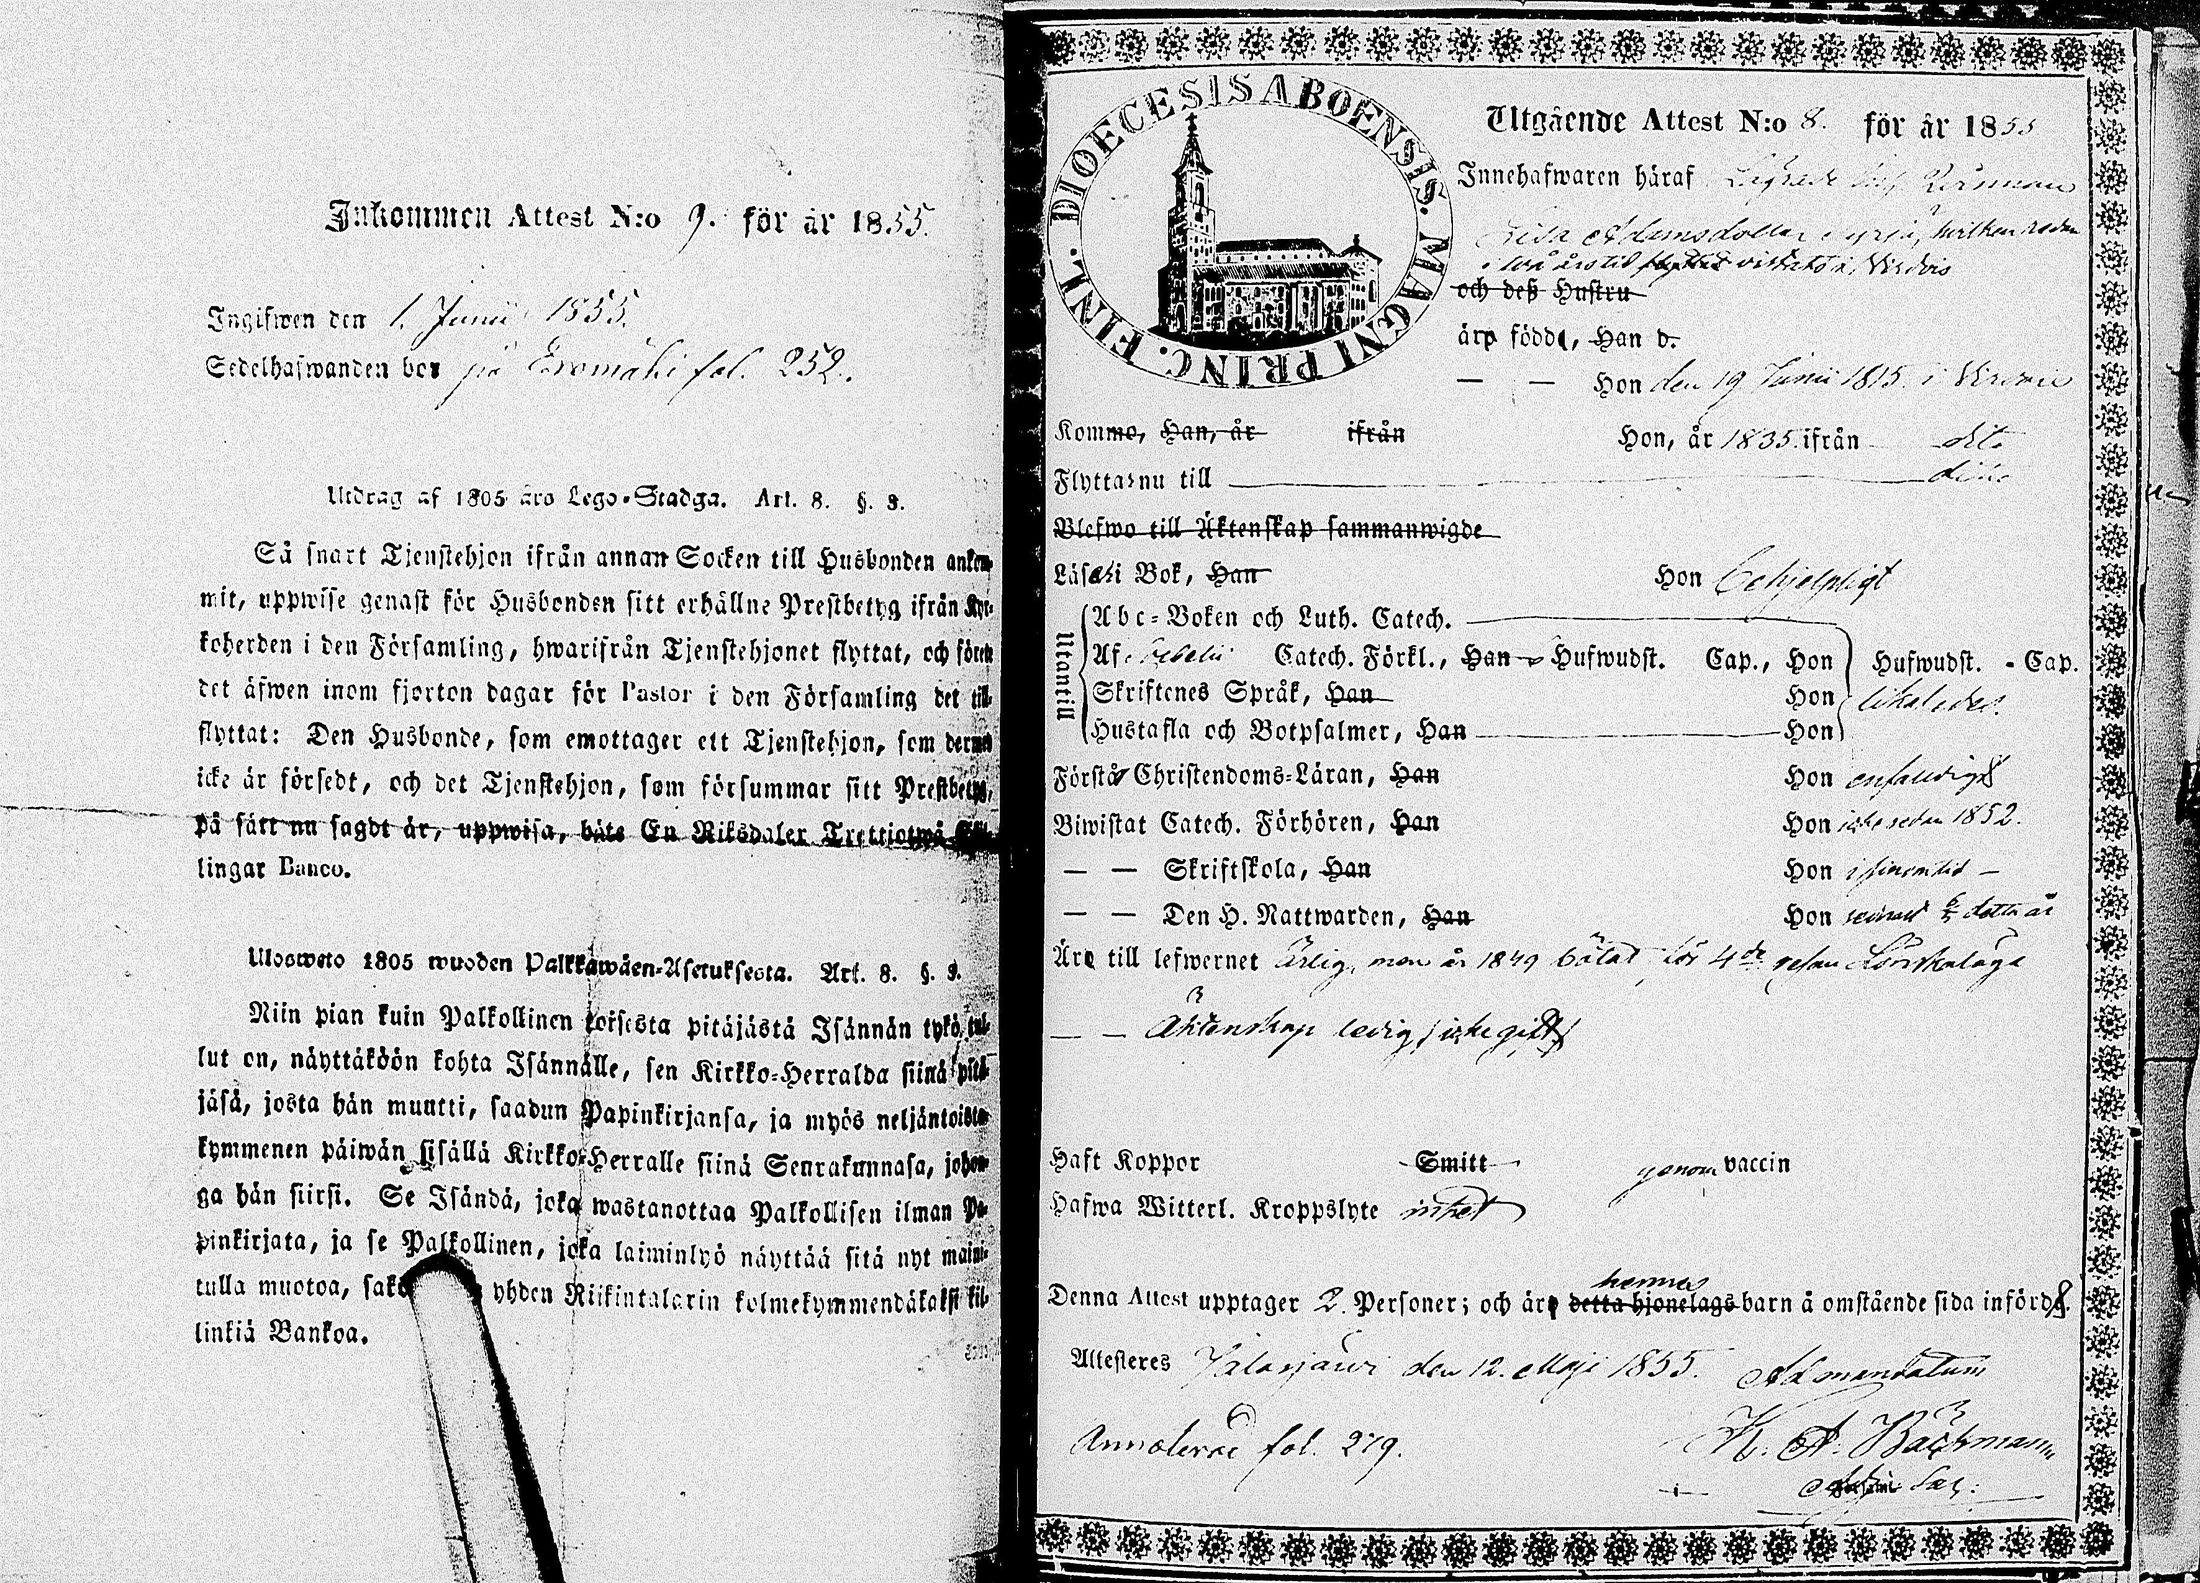 Inkommen Attest N:o 9. för år 1855.
Ingifwen den 1. Junii 1855.
Sedelhafwanden bor på Eromäki fol. 252.
Utdrag af 1805 års Lego-Stadga. Art. 8. §. 3.
Så snart Tjenstehjon ifrån annan Socken till Husbonden ankom-
mit, uppwise genast för Husbonden sitt erhållne Prestbetyg ifrån Kyr-
koherden i den Församling, hwarifrån Tjenstehjonet flyttat, och förete
det äfwen inom fjorton dagar för Pastor i den Församling det till-
flyttat: Den Husbonde, som emottager ett Tjenstehjon, som dermed
icke är försedt, och det Tjenstehjon, som försummar sitt Prestbetyg,
på sätt nu sagdt är, uppwisa, böte En Riksdaler Trettiotwå Skil-
lingar Banco.
Ulosweto 1805 wuoden Palkkawäen-Asetuksesta. Art. 8. §. 3.
Niin pian kuin Palkollinen toisesta pitäjästä Isännän tykö tul-
lut on, näyttäköön kohta Isännälle, sen Kirkko-Herralda siinä pitä-
jäsä, josta hän muutti, saadun Papinkirjansa, ja myös neljäntoista-
kymmenen päiwän sisällä Kirkko-Herralle siinä Seurakunnasa, johon-
ga hän siirsi. Se Isändä, joka wastanottaa Palkollisen ilman Pa-
pinkirjata, ja se Palkollinen, joka laiminlyö näyttää sitä nyt maini-
tulla muotoa, yhden Riikintalarin kolmekymmendäkaksi kil-
linkiä Bankoa.
DIOECESIS ABOENSIS. MAGNI PRINC. FINL.
Utgående Attest N:o 8. för år 1855
Innehafwaren häraf
Lisa Adamsdotter hwilken redan
i två års tid vistats i Virdois
och deß Hustru
äro född, Han d.
— — Hon den 19 Junii 1815 i
Kommo, Han, år ifrån Hon, år 1835 ifrån dito
Flyttar nu till dito
Blefwo till Äktenskap sammanwigde
Läser i Bok, Han Hon behjelpligt
Utantill
Abc-Boken och Luth. Catech.
Af Catech. Förkl., Han Hufwudst. Cap., Hon Hufwudst. - Cap.
Skriftenes Språk, Han Hon likaledes.
Hustafla och Botpsalmer, Han Hon
Förstår Christendoms-Läran, Han Hon enfaldigt
Biwistat Catech. Förhören, Han Hon icke sedan 1852.
— — Skriftskola, Han Hon i sinom tid —
— — Den H. Nattwarden, Han Hon senast detta år
Äro till lefwernet ärlig, men år 1849 bötat för 4de resan Lönskaläge
— — Äktenskap ledig, icke gift
Haft Koppor Smitt genom vaccin
Hafwa Witterl. Kroppslyte intet
Denna Attest upptager 2. Personer; och äro detta hjonelags hennes barn å omstående sida införd.
Attesteres Jalasjärvi den 12. Maji 1855. Ad mandatum
Annoterad fol. 279. K. A. Bäckman